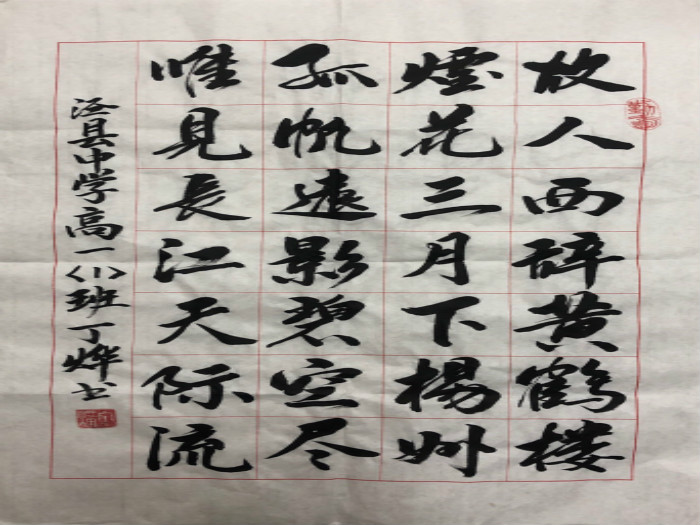 故人西辞黄鹤楼
煙花三月下揚州
孤帆遠影碧空尽
唯見長江天际流
泾县中学高一〈1〉班丁烨书